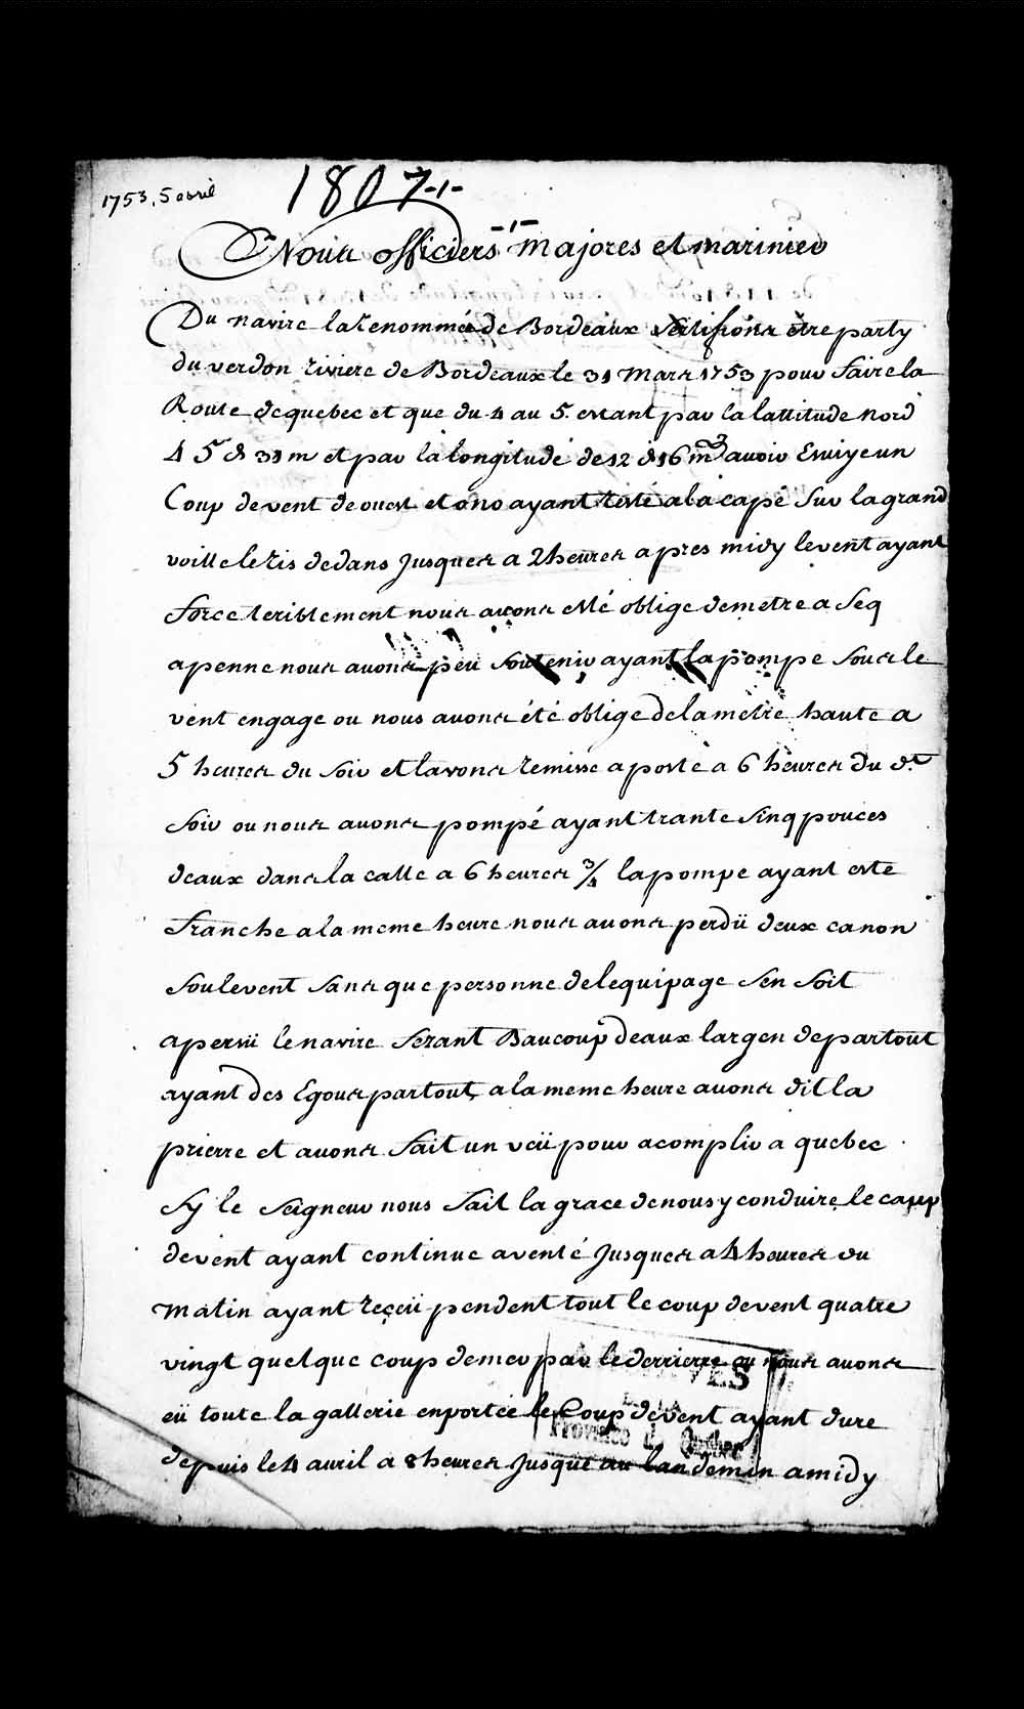 1753, 5 avril
1807-1-
-1-
Nous officiers majores et marinier
Du navire la Renommée de Bordeaux Certifions etre party
du verdon riviere de Bordeaux le 31 Mars 1753 pour faire la
Route de quebec et que du 4 au 5. estant par la lattitude nord
45 d 31 m et par la longitude de 12 d 16 m avoir Esuiye un
Coup de vent de ouest et ono ayant resté a la cape sur la grand
voille le ris dedans jusques a 2 heures apres midy le vent ayant
force teriblement nous avons esté oblige de metre a seq
apenne nous avons peu soutenir ayant la pompe sous le
vent engage ou nous avons été oblige de la metre haute a
5 heures du soir et lavons remisse a poste a 6 heures du d.t
soir ou nous avons pompé ayant trante sinq pouces
deaux dans la calle a 6 heures 3/4 la pompe ayant este
franche a la meme heure nous avons perdü deux canon
soulevent sans que personne de lequipage sen soit
apersü le navire fezant Baucoup deaux largen de partout
ayant des Egous partout, a la meme heure avons dit la
prierre et avons fait un veü pour acomplir a quebec
sy le seigneur nous fait la grace de nous y conduire, le coup
devent ayant continue a venté jusques a 4 heures du
matin ayant reçeü pendent tout le coup devent quatre
vingt quelque coup demer par le derrierre ou nous avons
eü toute la gallerie enportée le Coup devent ayant dure
depuis le 4 avril a 8 heures jusque au landemin a midy
ARCHIVES
DE LA
Province de Québec